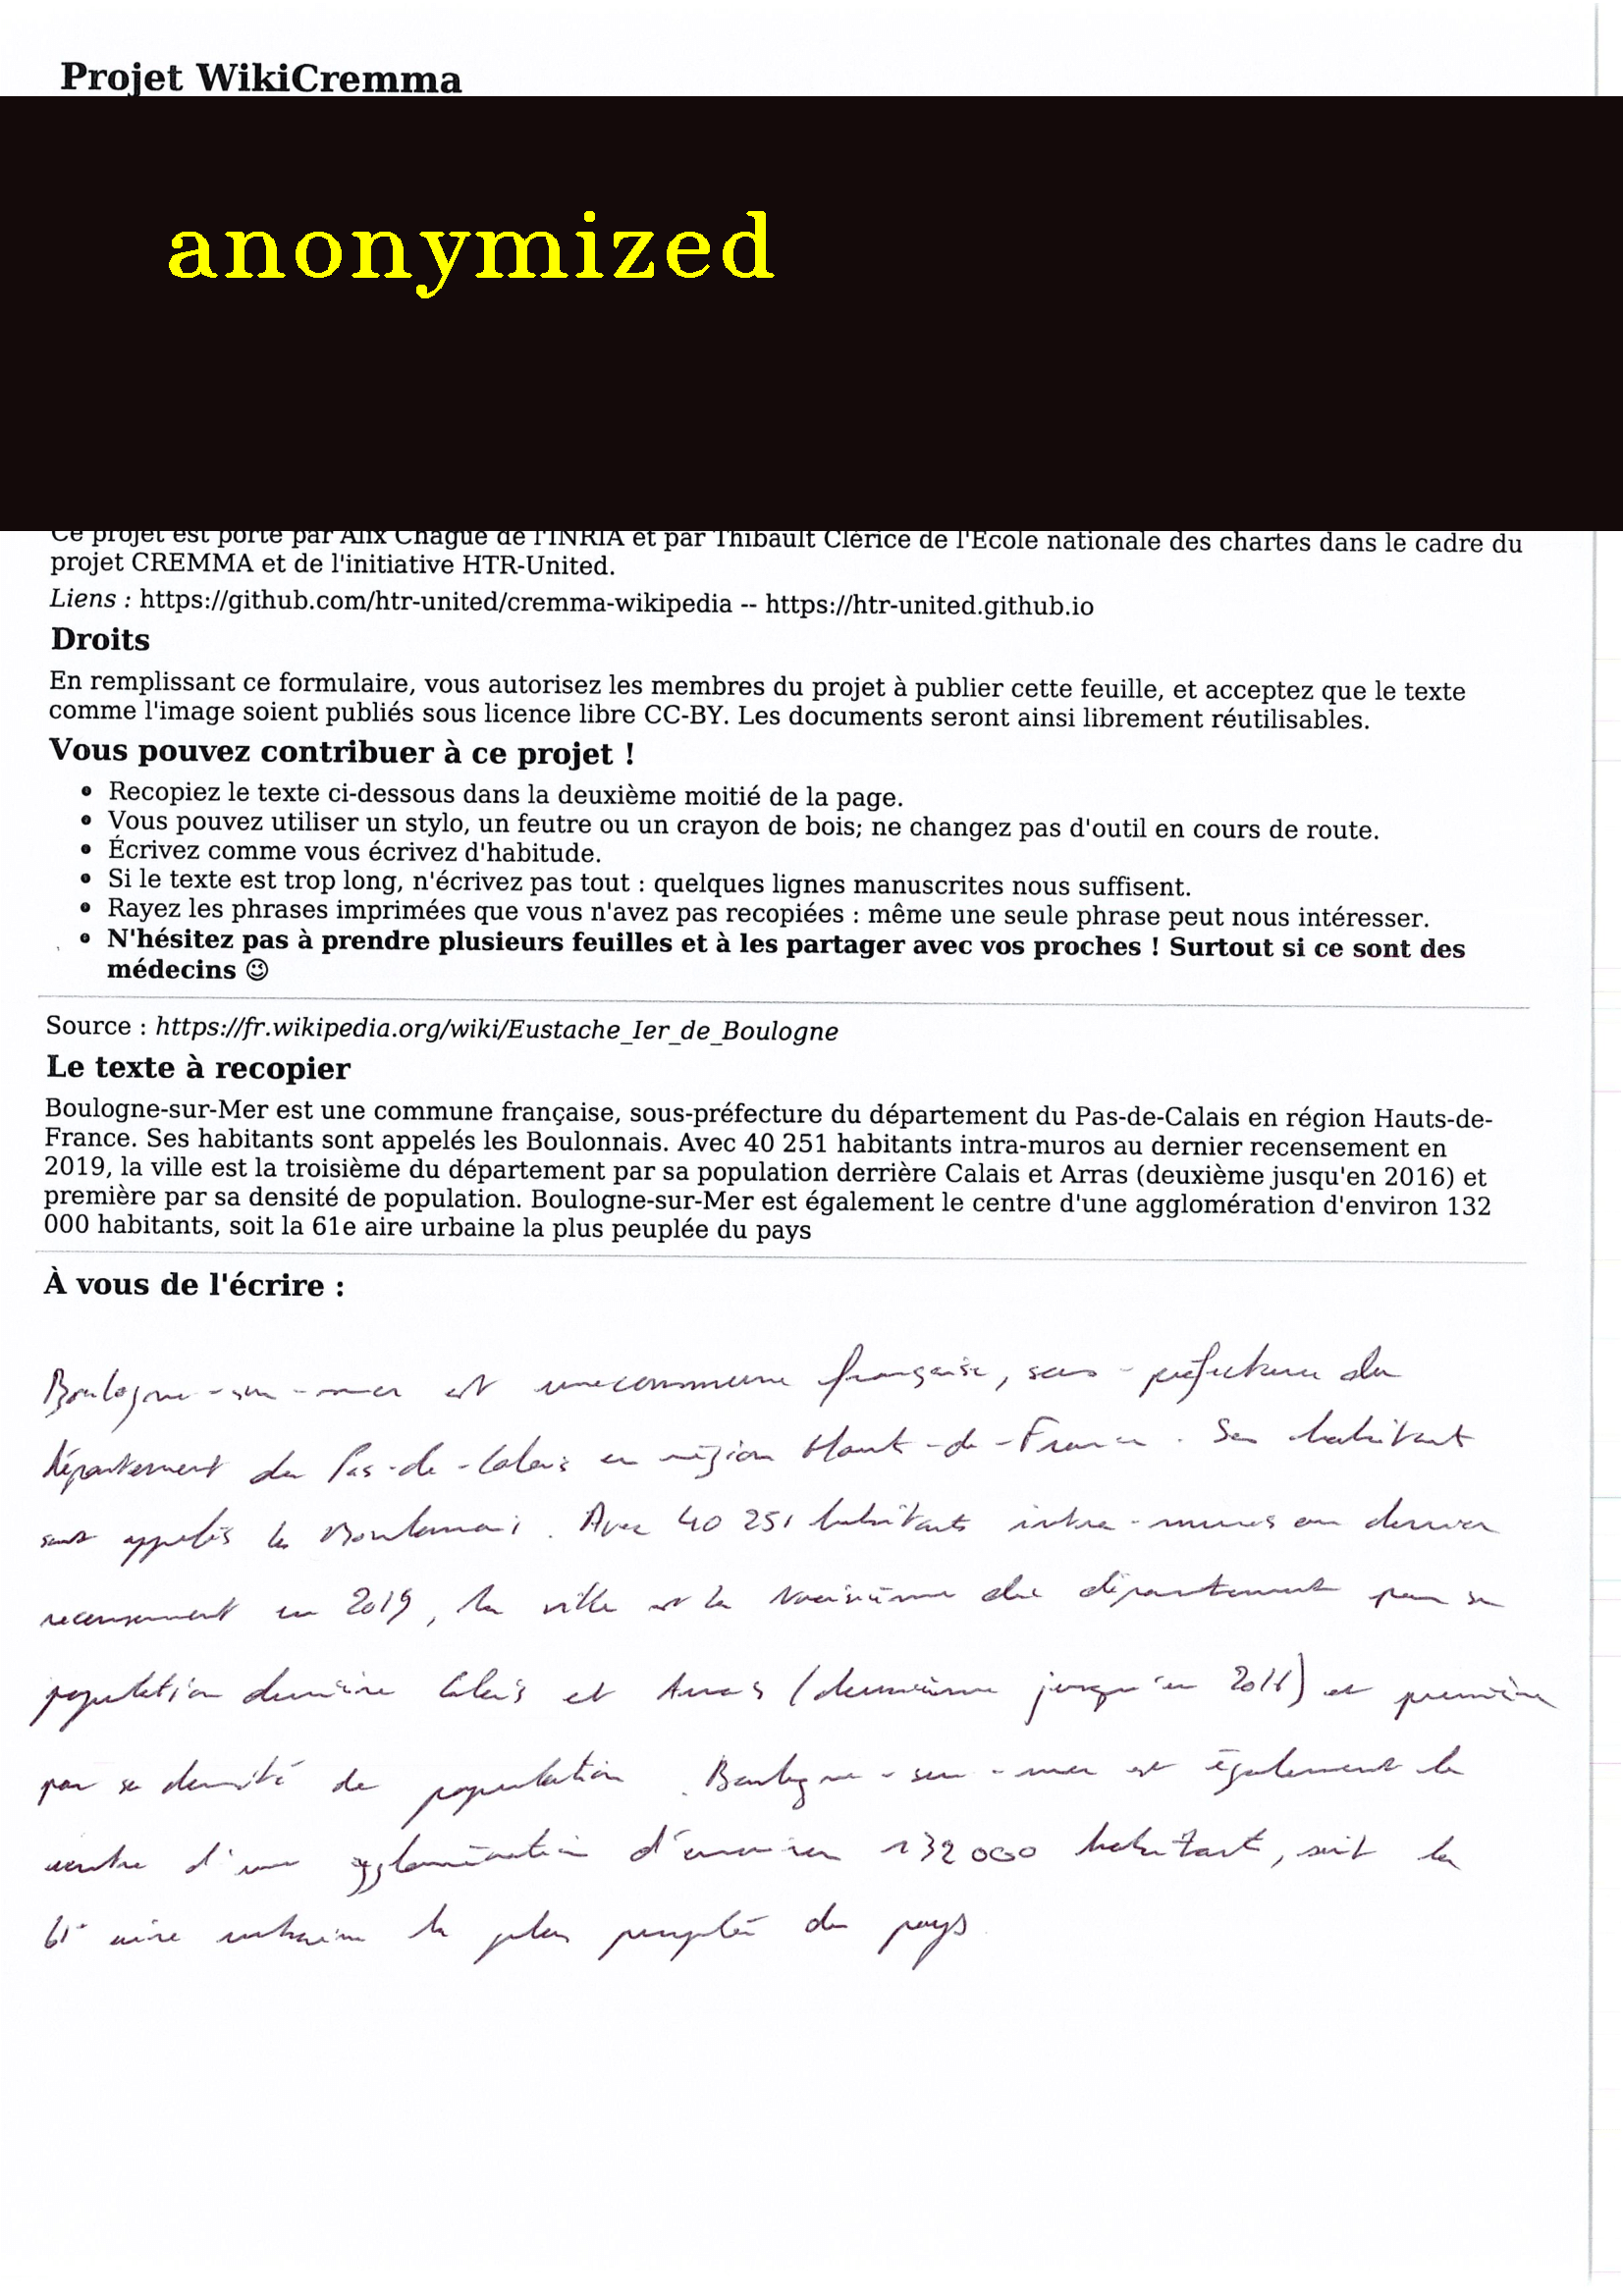 Projet WikiCremma
anonymized
Ce projet est porté par Alix Chagué de l'INRIA et par Thibault Clérice de l'École nationale des chartes dans le cadre du
projet CREMMA et de l'initiative HTR-United.
Liens : https://github.com/htr-united/cremma-wikipedia -- https://htr-united.github.io
Droits
En remplissant ce formulaire, vous autorisez les membres du projet à publier cette feuille, et acceptez que le texte
comme l'image soient publiés sous licence libre CC-BY. Les documents seront ainsi librement réutilisables.
Vous pouvez contribuer à ce projet !
• Recopiez le texte ci-dessous dans la deuxième moitié de la page.
• Vous pouvez utiliser un stylo, un feutre ou un crayon de bois; ne changez pas d'outil en cours de route.
• Écrivez comme vous écrivez d'habitude.
• Si le texte est trop long, n'écrivez pas tout : quelques lignes manuscrites nous suffisent.
• Rayez les phrases imprimées que vous n'avez pas recopiées : même une seule phrase peut nous intéresser.
• N'hésitez pas à prendre plusieurs feuilles et à les partager avec vos proches ! Surtout si ce sont des
médecins 😉
Source : https://fr.wikipedia.org/wiki/Eustache_Ier_de_Boulogne
Le texte à recopier
Boulogne-sur-Mer est une commune française, sous-préfecture du département du Pas-de-Calais en région Hauts-de-
France. Ses habitants sont appelés les Boulonnais. Avec 40 251 habitants intra-muros au dernier recensement en
2019, la ville est la troisième du département par sa population derrière Calais et Arras (deuxième jusqu'en 2016) et
première par sa densité de population. Boulogne-sur-Mer est également le centre d'une agglomération d'environ 132
000 habitants, soit la 61e aire urbaine la plus peuplée du pays
À vous de l'écrire :
Boulogne-sur-mer est une commune française, sous-préfecture du
département du Pas-de-Calais en région Haut-de-France. Ses habitant
sont appelés les Boulonnais. Avec 40 251 habitants intra-muros au dernier
recensement en 2019, la ville est la troisième du département par sa
population derrière Calais et Arras (deuxième jusqu'en 2016) et première
par sa densité de population. Boulogne-sur-mer est également le
centre d'une agglomération d'environ 132 000 habitant, soit la
61e aire urbaine la plus peuplée du pays.